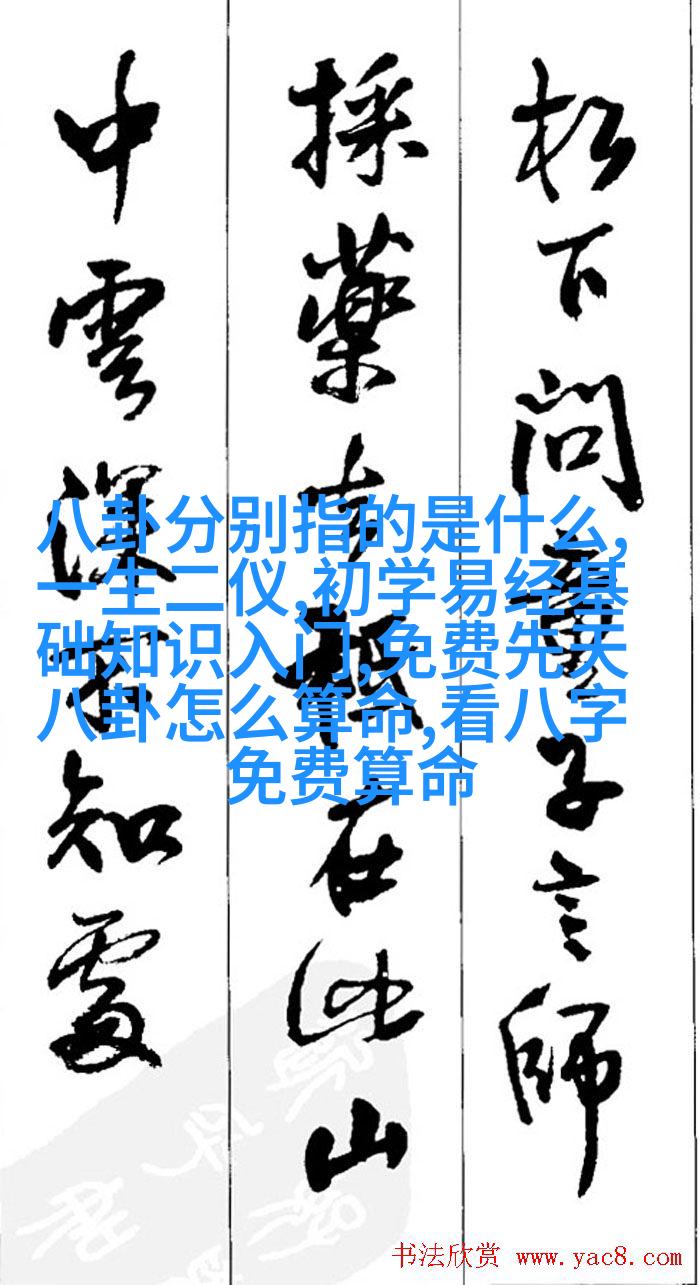 松下問童子言師
採藥去秪在此山
中雲深不知處
八卦分别指的是什么,
一生二仪,初学易经基
础知识入门,免费先天
八卦怎么算命,看八字
免费算命
书法欣赏 www.yac8.com